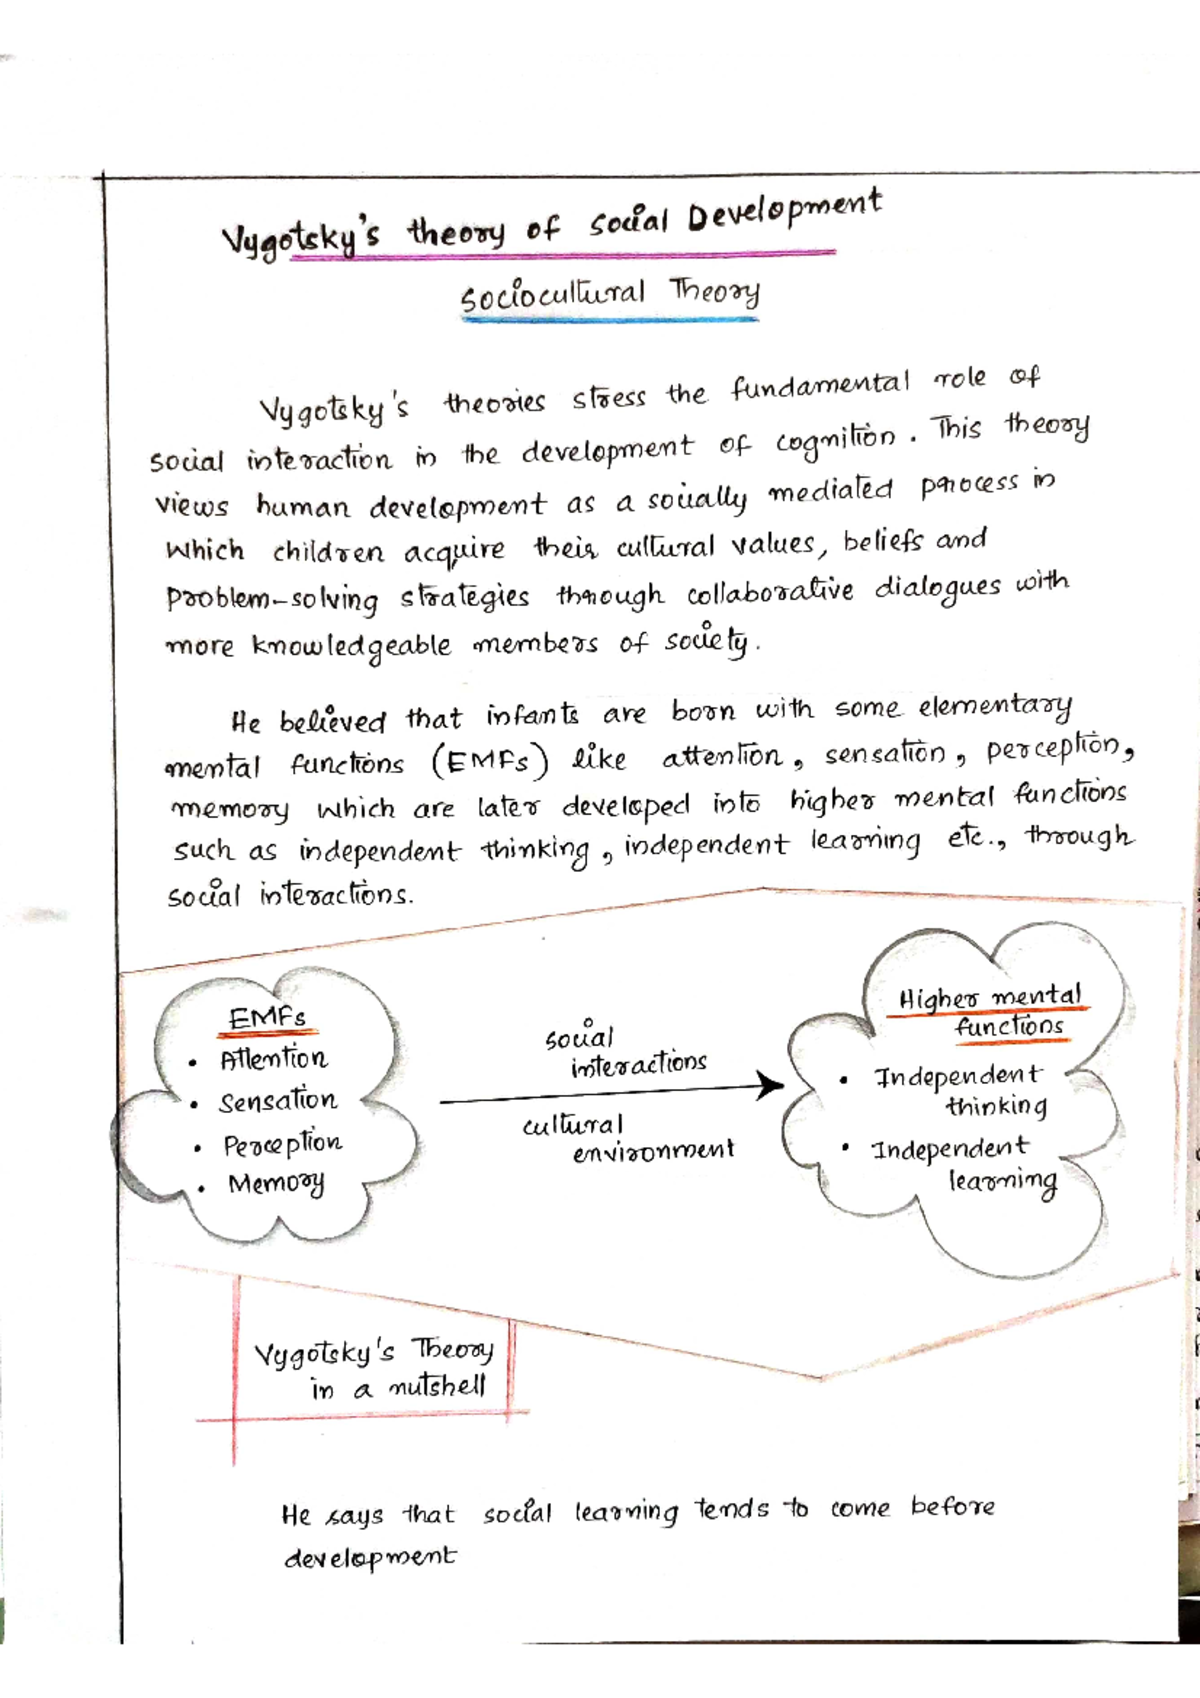 Vygotsky's theory of social Development
Sociocultural Theory
Vygotsky's theories stress the fundamental role of
social interaction in the development of cognition. This theory
views human development as a socially mediated process in
which children acquire their cultural values, beliefs and
problem-solving strategies through collaborative dialogues with
more knowledgeable members of society.
He believed that infants are born with some elementary
mental functions (EMFs) like attention, sensation, perception,
memory which are later developed into higher mental functions
such as independent thinking, independent learning etc., through
social interactions.
EMFs
• Attention
• Sensation
• Perception
• Memory
social
interactions
cultural
environment
Higher mental
functions
• Independent
thinking
• Independent
learning
Vygotsky's Theory
in a nutshell
He says that social learning tends to come before
development